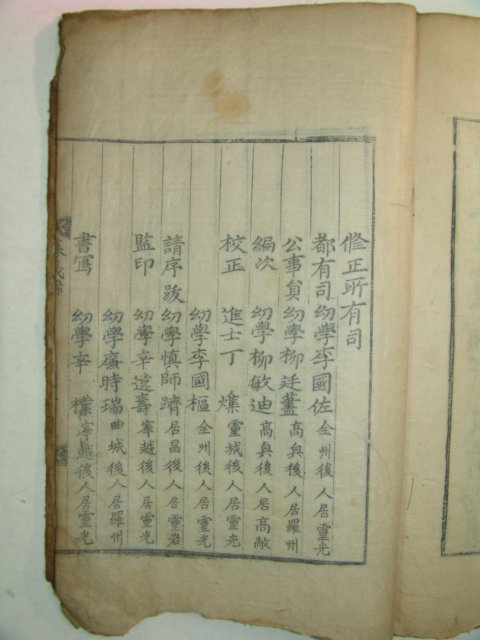 修正所有司
都有司 幼學李國佐 全州後人居靈光
公事員 幼學柳廷藎 高興後人居羅州
編次 幼學柳敏迪 高興後人居高敞
校正 進士丁 爑 靈城後人居靈光
幼學李國樞 全州後人居靈光
請序跋 幼學愼師躋 居昌後人居靈岩
監印 幼學辛遠壽 寧越後人居靈光
幼學廉時瑞 曲城後人居羅州
書寫 幼學辛 檏 寧越後人居靈光